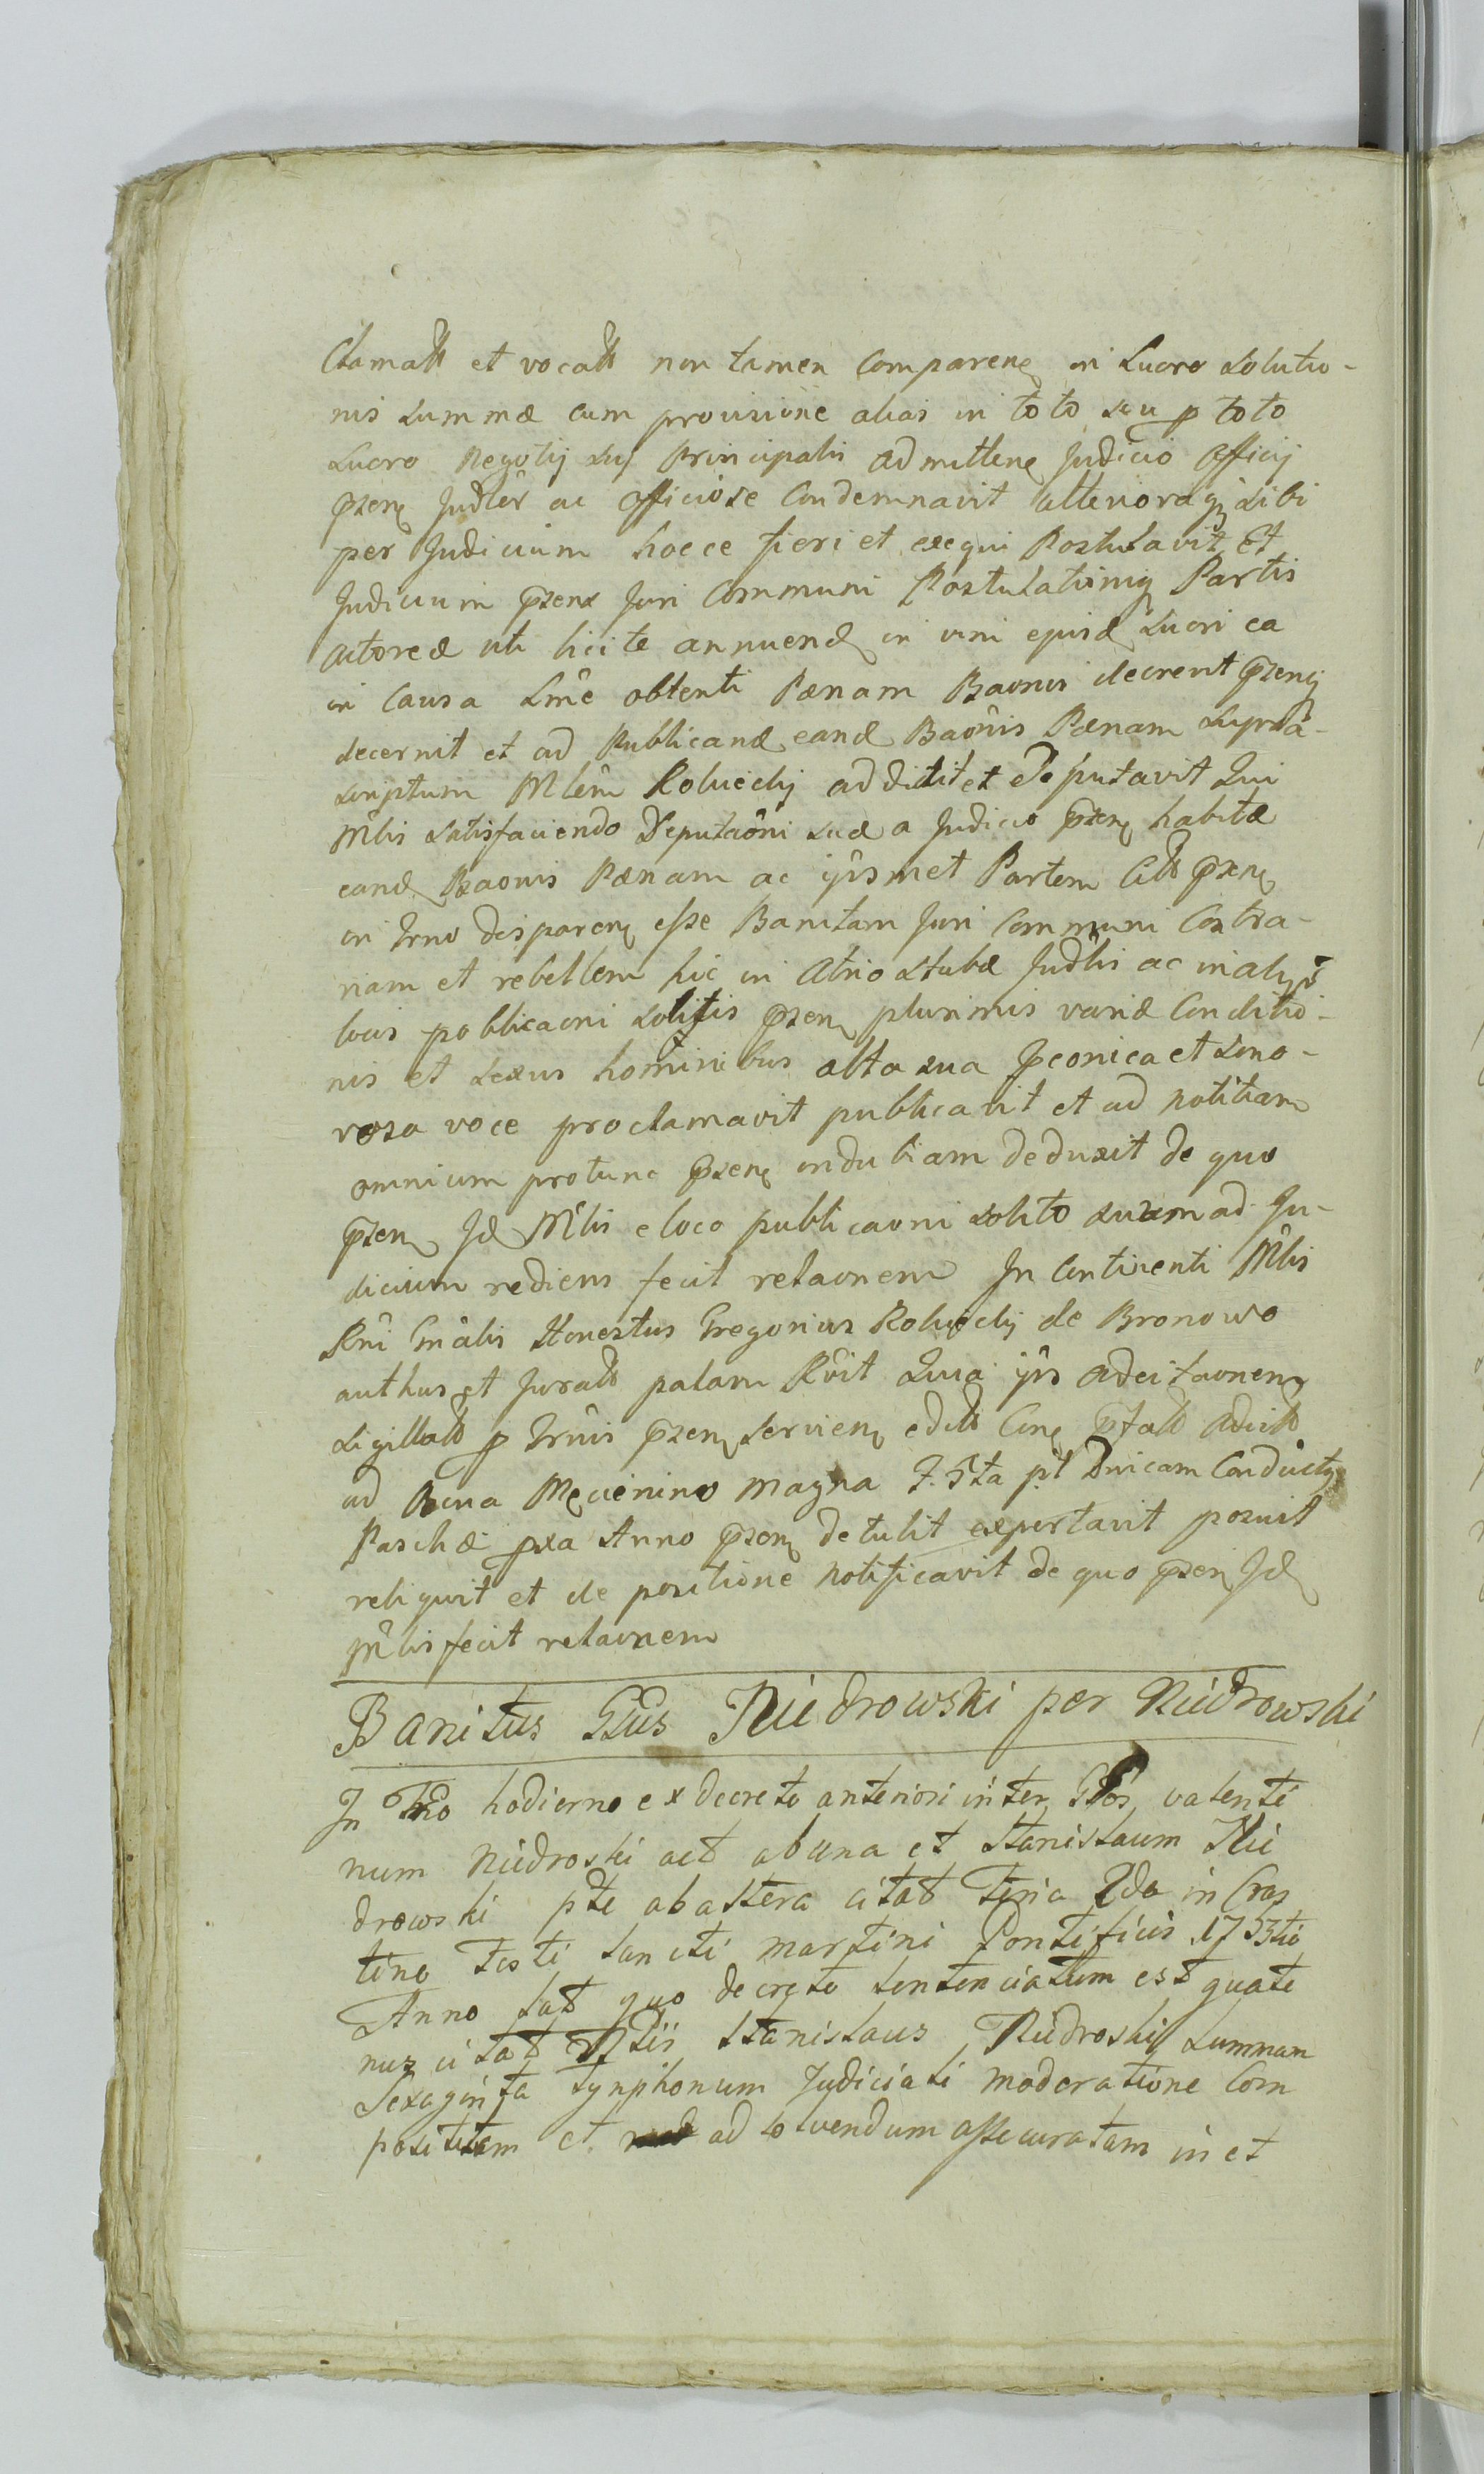 Clamatt et vocatt non tamen Comparenę in Lucro Solutio-
nis Summæ cum provisione alias in toto seu p toto
Lucro Negotij Suj Principalis admittenę Judicio Officij
przenę Judlêr ac Officiose Condemnavit ulteriorag sibi
per Judicium hocce fieri et exequi Postulavit Et
Judicium przens Juri Communi Postulationiq Partis
actoreæ uti licite annuend in vim ejusd Lucri ea
in Causa Lmê obtenti Pænam Baonis decrevit przenq
decernit et ad Publicand eand Baonis Pænam Supra-
scriptum Mlêm Roluiedij addidit et Deputavit Qui
Mlis satisfaciendo Deputaôni suæ a Judicio przenę habitæ
eand Baonis Pænam ac ijrsmet Partem Citt przenę
in Trno disparenę esse Banitam Juri Communi Contra-
riam et rebellem hic in Atrio Stubæ Judlis ac in alijs
locis publicaoni solitis przenę plurimis variæ Conditio-
nis et sexus hominibus alta sua pconica et sono-
rosa voce proclamavit publicavit et ad notitiam
omnium protunc przenę indubiam deduxit de quo
przenę Jd Mlis e loco publicaoni solito suam ad Ju-
dicium rediens fecit relaonem In Continenti Mlis
Rni Gnâlis Honestus Gregorius Roluiedij de Bronowo
authus et Juratt palam Rvit Quia ijrs adcitaonem
sigillatt p Trnis przenę servienę editt Conę Citatt adcitt
ad Bona Mecienino magna F. 5ta pt Dnicam Conductq
Paschæ pxa Anno przenę detulit exportavit posuit
reliquit et de positione notificavit de quo przenę Jd
Mlis fecit relaonem
Banitus Gsus Niedrowski per Niedrowski
In Tno hodierno ex decreto anteriori inter Gsos valenti
num Niedroski act ab una et Stanislaum Nie
drowski pte ab altera citat feria 2da in Cras
tino Festi Sancti martini Pontificis 1753tio
Anno Lat quo decreto sentenciatum est quate
nus citat Stanislaus Niedroski summam
Sexaginta Tynphonum Judiciali moderatione Com
posititam et ad solvendum assecuratam in et